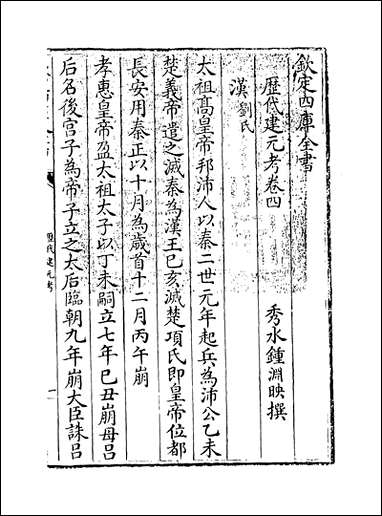 欽定四庫全書
歴代建元考卷四
秀水鍾淵映撰
漢劉氏
太祖髙皇帝邦沛人以秦二世元年起兵為沛公乙未
楚義帝遣之滅秦為漢王己亥滅楚項氏即皇帝位都
長安用秦正以十月為嵗首十二月丙午崩
孝惠皇帝盈太祖太子以丁未嗣立七年己丑崩母吕
后名後宫子為帝子立之太后臨朝九年崩大臣誅吕
歴代建元考
一